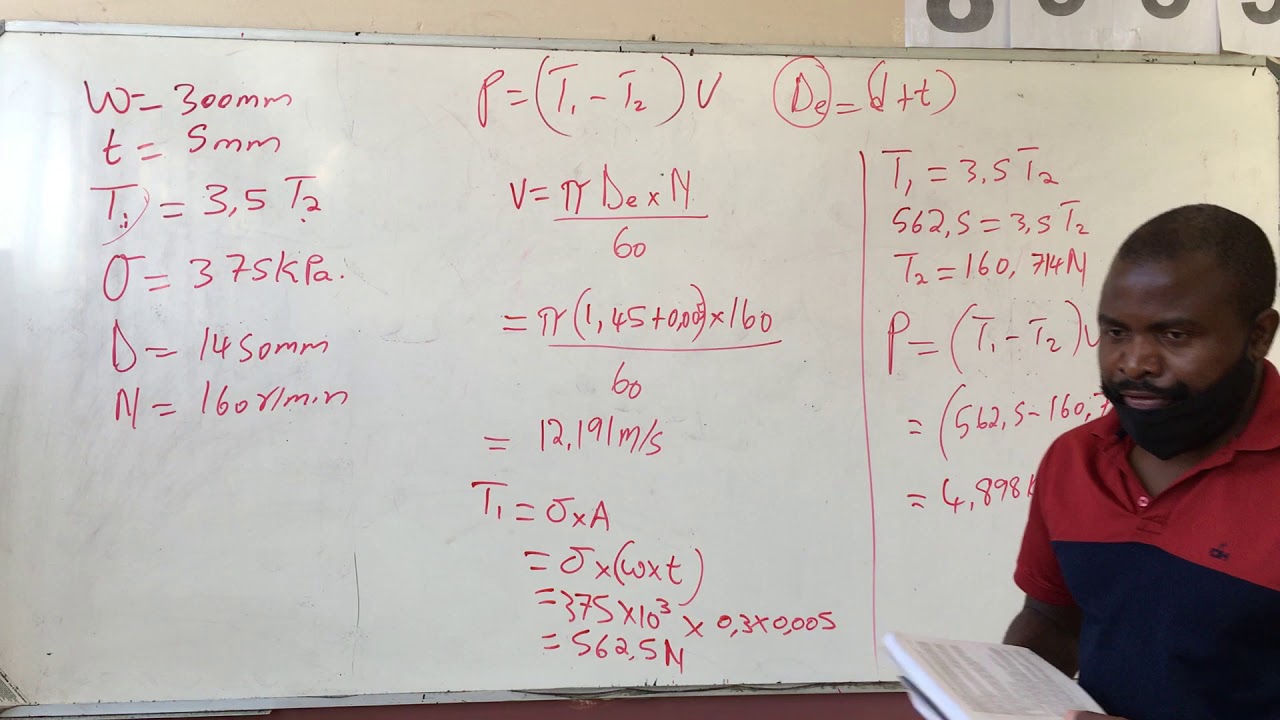 W = 300mm
t = 5mm
T₁ = 3,5 T₂
σ = 375kPa.
D = 1450mm
N = 160r/min
P = (T₁ - T₂) V
De = (d + t)
V = π De x N
60
= π (1,45 + 0,005) x 160
60
= 12,191m/s
T₁ = σ x A
= σ x (w x t)
= 375 x 10³ x 0,3 x 0,005
= 562,5N
T₁ = 3,5 T₂
562,5 = 3,5 T₂
T₂ = 160,714N
P = (T₁ - T₂) V
= (562,5 - 160,7
= 4,898k